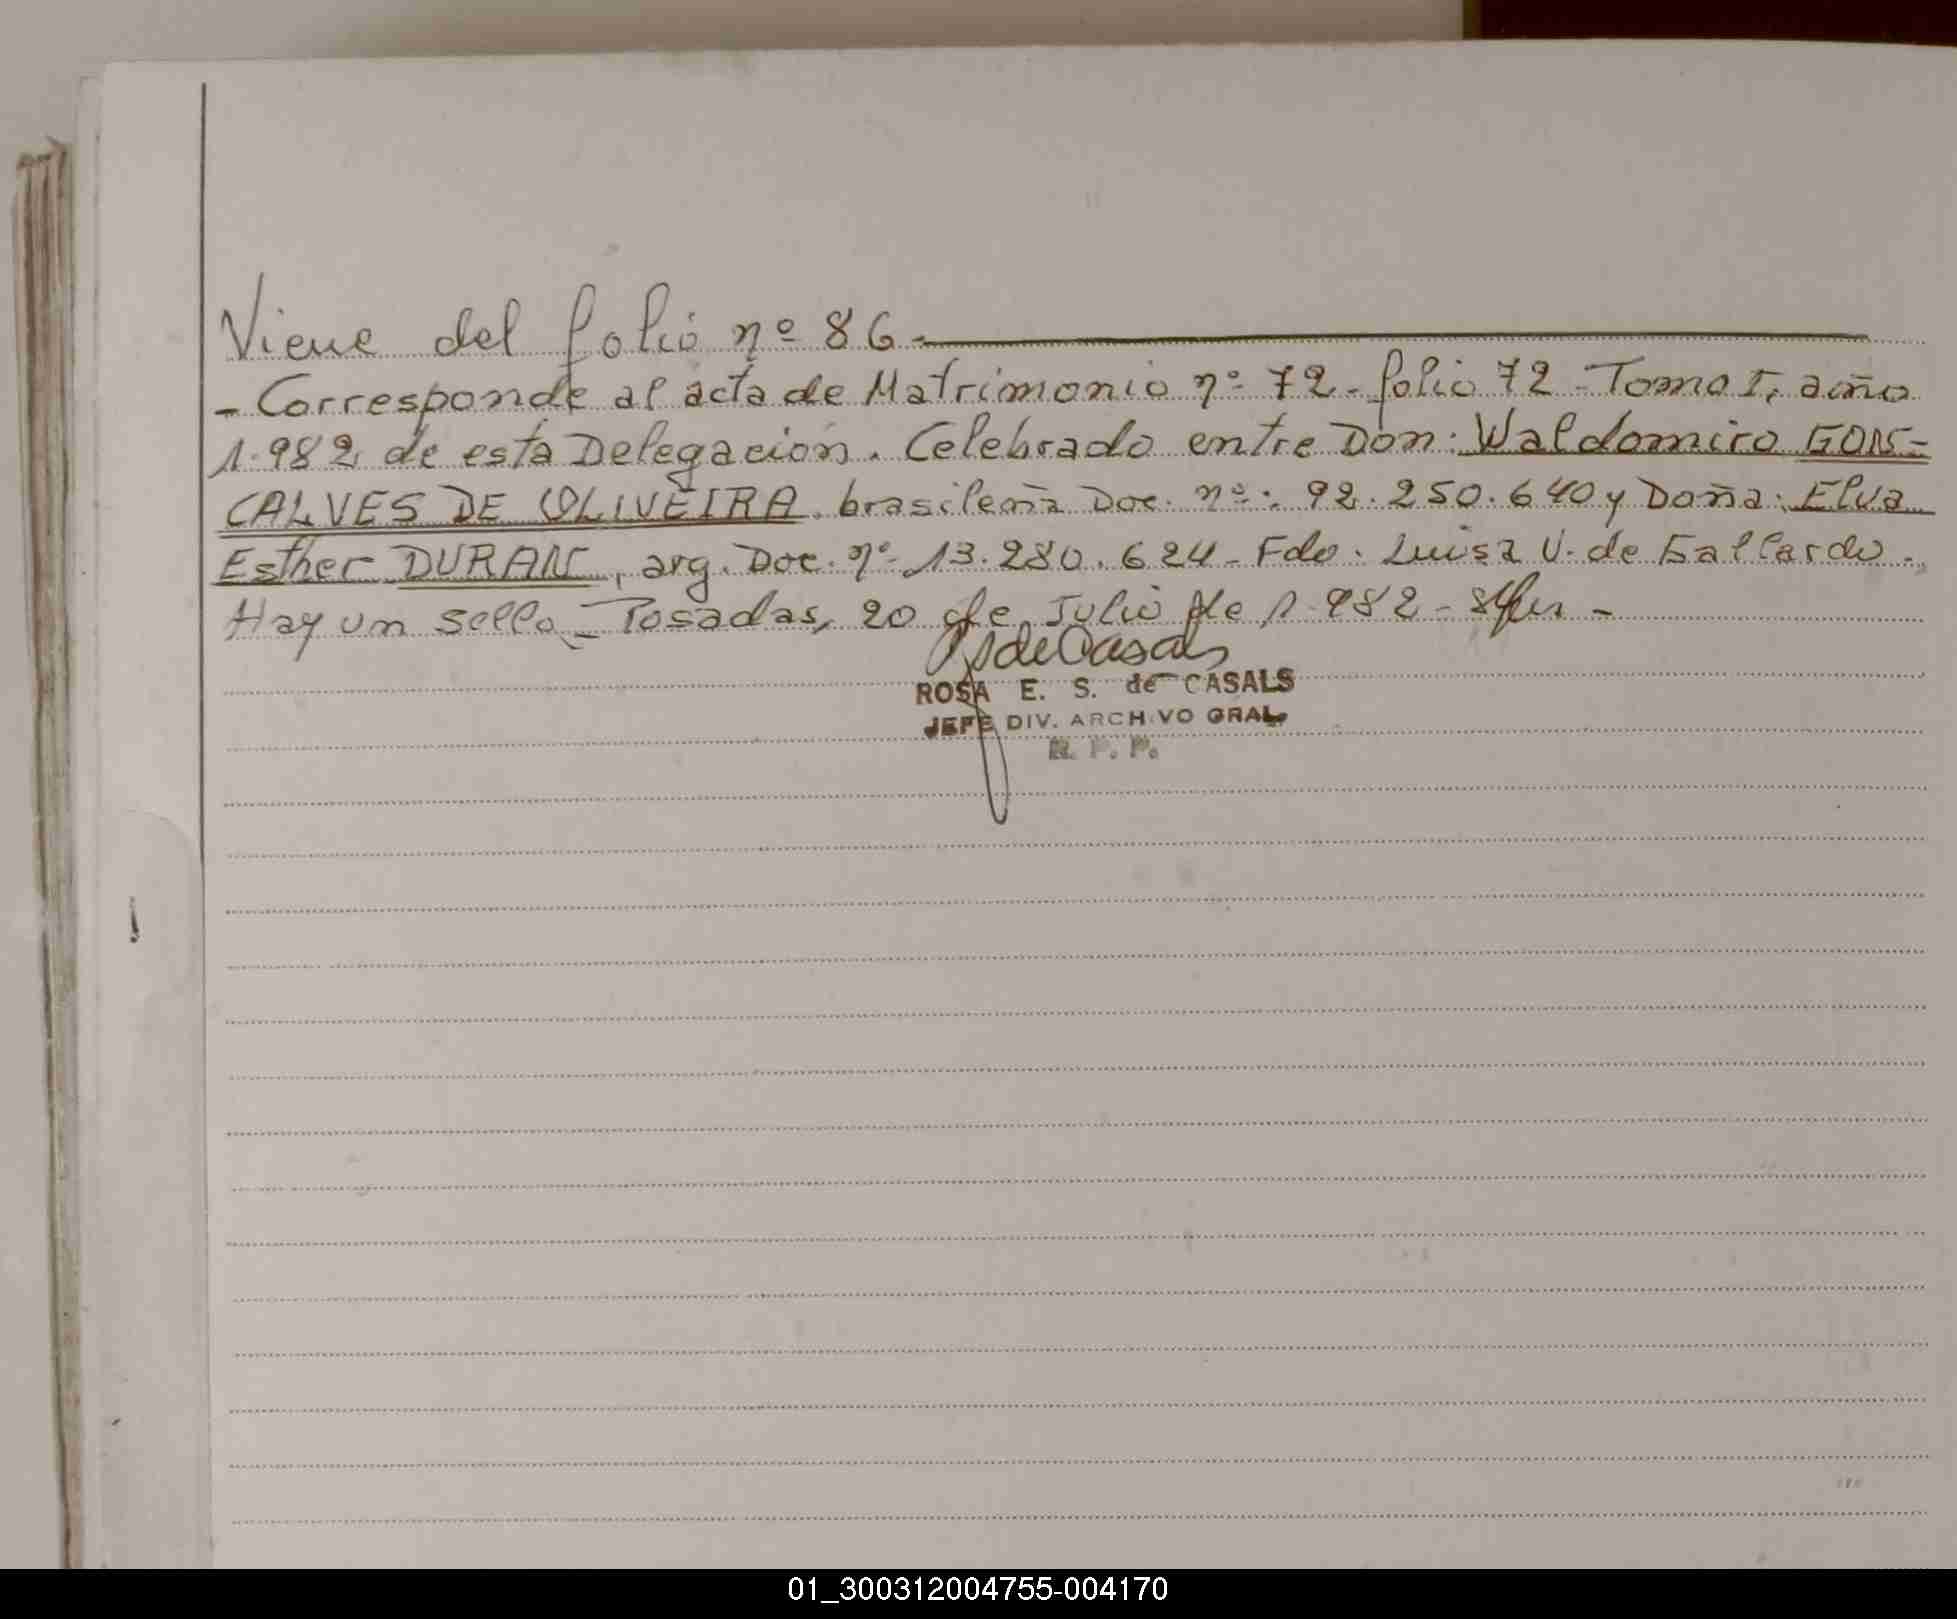 Viene del folio nº 86.
- Corresponde al acta de Matrimonio nº 72 - folio 72 - Tomo I, año
1.982, de esta Delegación. Celebrado entre Don: Waldomiro GON-
CALVES DE OLIVEIRA, brasileña Doc. nº: 92.250.640 y Doña: Elva
Esther DURAN, arg. Doc. nº 13.280.624 - Fdo. Luisa V. de Gallardo.
Hay un sello - Posadas, 20 de Julio de 1.982 -
de Casals
ROSA E. S. de CASALS
JEFE DIV. ARCHIVO GRAL.
R. P. P.
01_300312004755-004170